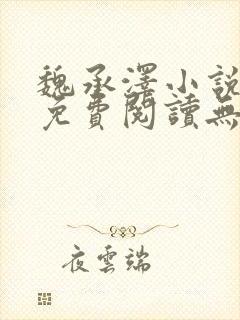 魏承澤小說
免費閱讀無
夜雲端